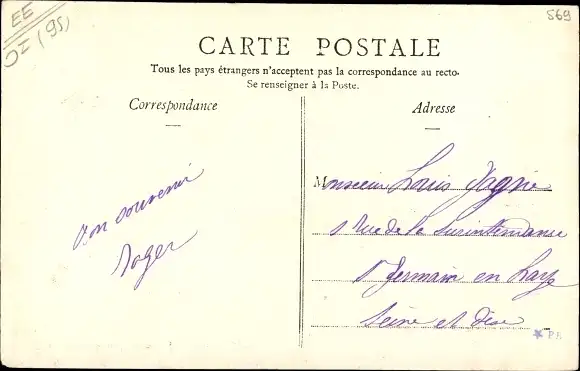 EE
(95)
569
CARTE POSTALE
Tous les pays étrangers n'acceptent pas la correspondance au recto.
Se renseigner à la Poste.
Correspondance
Adresse
Bon souvenir
Roger
Monsieur Louis Jagnie
1 Rue de la Surintendance
St Germain en Laye
Seine et Oise